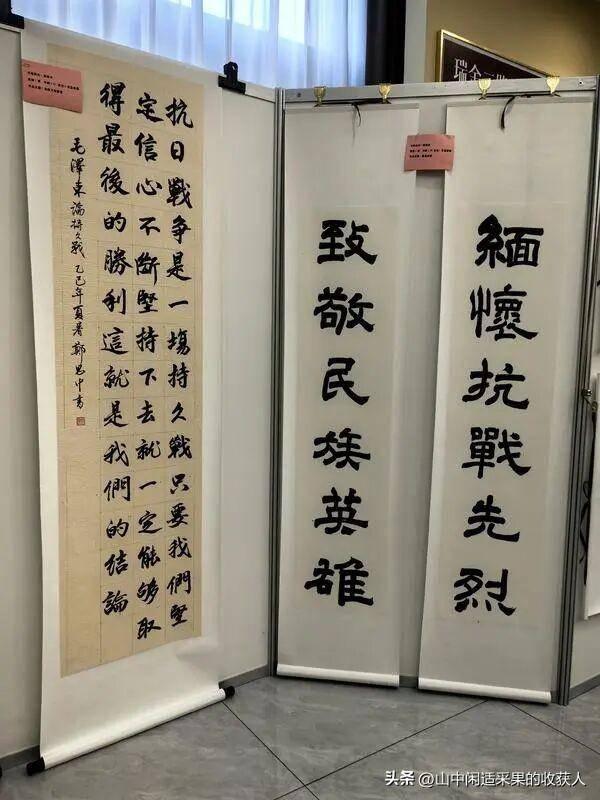 抗日戰争是一場持久戰只要我們堅
定信心不斷堅持下去就一定能够取
得最後的勝利這就是我們的结論
毛澤東論持久戰 乙巳年夏 鄭思中書
緬懷抗戰先烈
致敬民族英雄
瑞金
头条 @山中闲适采果的收获人